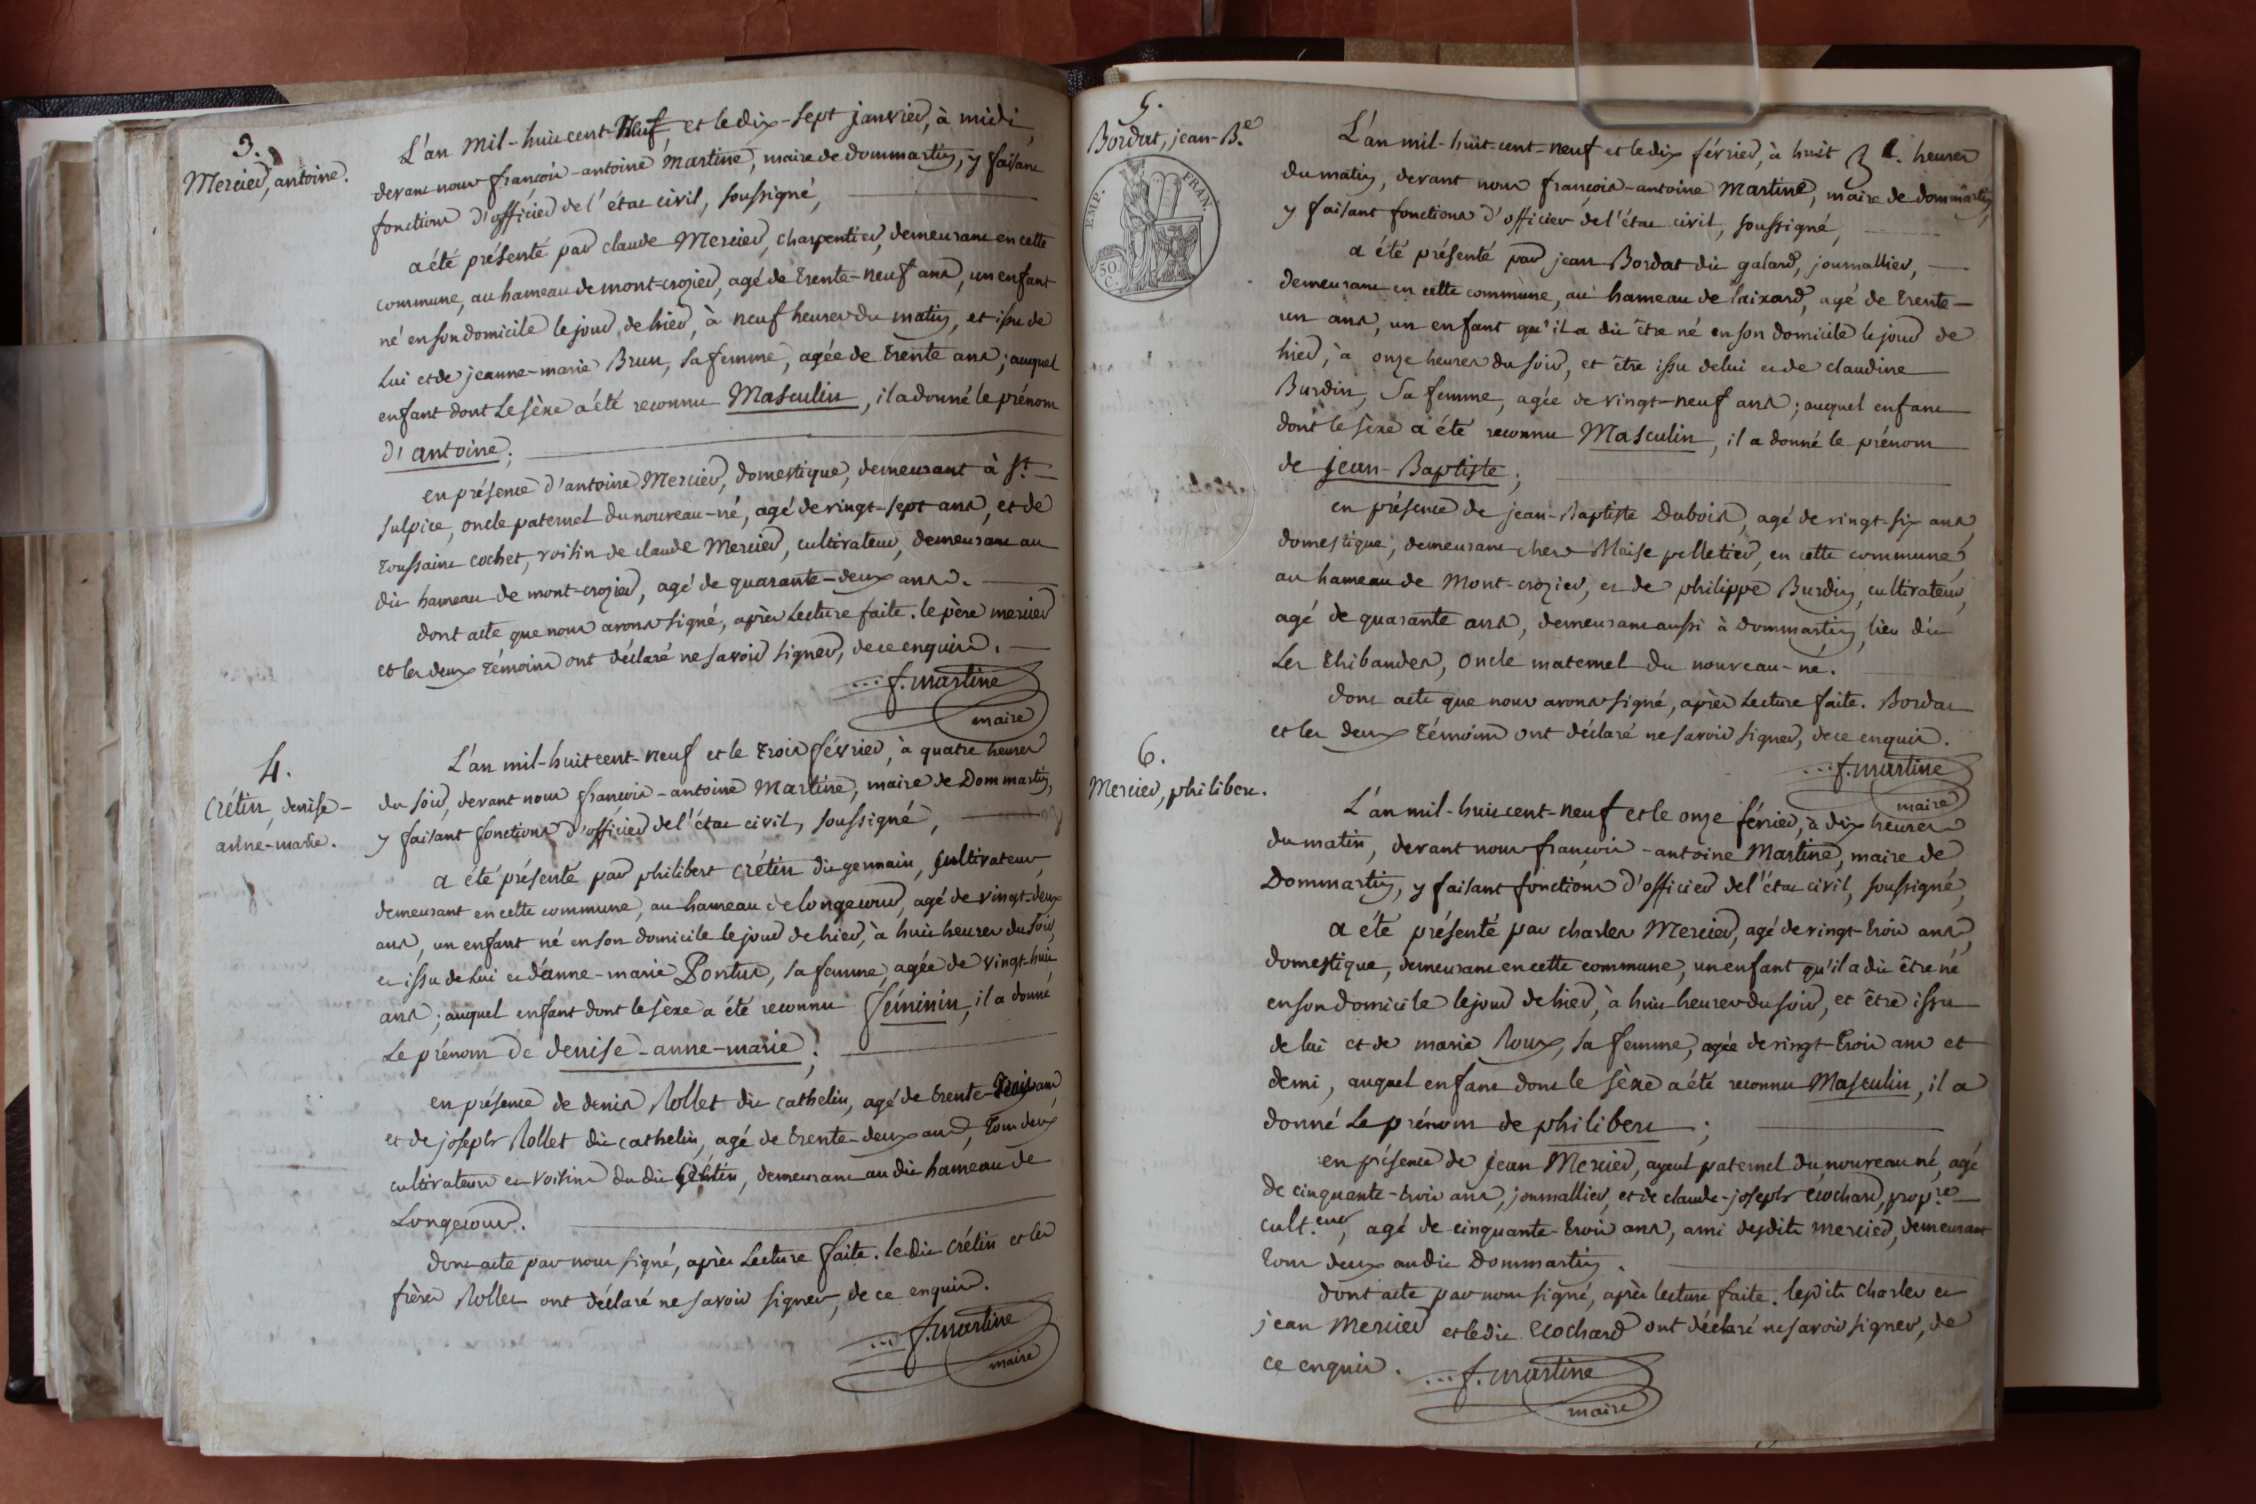 3.
Mercier, antoine.
L'an mil-huit-cent-Neuf, et le dix-sept janvier, à midi,
devant nous françois-antoine Martine, maire de dommartin, y faisant
fonctions d'officier de l'état civil, soussigné,
a été présenté par claude Mercier, charpentier, demeurant en cette
commune, au hameau de mont-crozier, agé de trente-neuf ans, un enfant
né en son domicile le jour de hier, à neuf heures du matin, et issu de
lui et de jeanne-marie Brun, sa femme, agée de trente ans; auquel
enfant dont le sèxe a été reconnu Masculin, il a donné le prénom
d'antoine;
en présence d'antoine Mercier, domestique, demeurant à St.
sulpice, oncle paternel du nouveau-né, agé de vingt-sept ans, et de
toussaint cochet, voisin de claude Mercier, cultivateur, demeurant au
dit hameau de mont-crozier, agé de quarante-deux ans.
dont acte que nous avons signé, après lecture faite. le père mercier
et les deux témoins ont déclaré ne savoir signer, de ce enquis.
f. martine
maire
4.
crétin, denise-
anne-marie.
L'an mil-huit-cent-neuf et le trois février, à quatre heures
du soir, devant nous françois-antoine Martine, maire de Dommartin,
y faisant fonctions d'officier de l'état civil, soussigné,
a été présenté par philibert crétin dit germain, cultivateur,
demeurant en cette commune, au hameau de longecour, agé de vingt-deux
ans, un enfant né en son domicile le jour de hier, à huit heures du soir,
et issu de lui et d'anne-marie Pontus, sa femme, agée de vingt-huit
ans; auquel enfant dont le sèxe a été reconnu féminin, il a donné
le prénom de denise-anne-marie;
en présence de denis Rollet dit cathelin, agé de trente-trois ans,
et de joseph Rollet dit cathelin, agé de trente-deux ans, tous deux
cultivateurs et voisins du dit crétin, demeurant au dit hameau de
Longecour.
dont acte par nous signé, après lecture faite. le dit crétin et les
frères Rollet ont déclaré ne savoir signer, de ce enquis.
f. martine
maire
5.
Bordat, jean-B.e
EMP. FRAN.
50. C.
L'an mil-huit-cent-neuf et le dix février, à huit heures
du matin, devant nous françois-antoine Martine, maire de dommartin,
y faisant fonctions d'officier de l'état civil, soussigné,
a été présenté par jean Bordat dit galard, journallier,
demeurant en cette commune, au hameau de laixard, agé de trente-
un ans, un enfant qu'il a dit être né en son domicile le jour de
hier, à onze heures du soir, et être issu de lui et de claudine
Burdin, sa femme, agée de vingt-neuf ans; auquel enfant
dont le sèxe a été reconnu Masculin, il a donné le prénom
de jean-Baptiste;
en présence de jean-Baptiste Dubois, agé de vingt-six ans,
domestique, demeurant chez Moise pelletier, en cette commune,
au hameau de Mont-crozier, et de philippe Burdin, cultivateur,
agé de quarante ans, demeurant aussi à dommartin, lieu dit
Les thibaudes, oncle maternel du nouveau-né.
dont acte que nous avons signé, après lecture faite. Bordat
et les deux témoins ont déclaré ne savoir signer, de ce enquis.
f. martine
maire
6.
Mercier, philibert.
L'an mil-huit-cent-neuf et le onze février, à dix heures
du matin, devant nous françois-antoine Martine, maire de
Dommartin, y faisant fonctions d'officier de l'état civil, soussigné,
a été présenté par charles Mercier, agé de vingt-trois ans,
domestique, demeurant en cette commune, un enfant qu'il a dit être né
en son domicile le jour de hier, à huit heures du soir, et être issu
de lui et de marie Roux, sa femme, agée de vingt-trois ans et
demi, auquel enfant dont le sèxe a été reconnu Masculin, il a
donné le prénom de philibert;
en présence de jean Mercier, ayeul paternel du nouveau né, agé
de cinquante-trois ans, journallier, et de claude-joseph ecochard, prop.re
cult.eur, agé de cinquante-trois ans, ami desdits mercier, demeurant
tous deux au dit Dommartin.
dont acte par nous signé, après lecture faite. lesdits charles et
jean Mercier et le dit ecochard ont déclaré ne savoir signer, de
ce enquis.
f. martine
maire